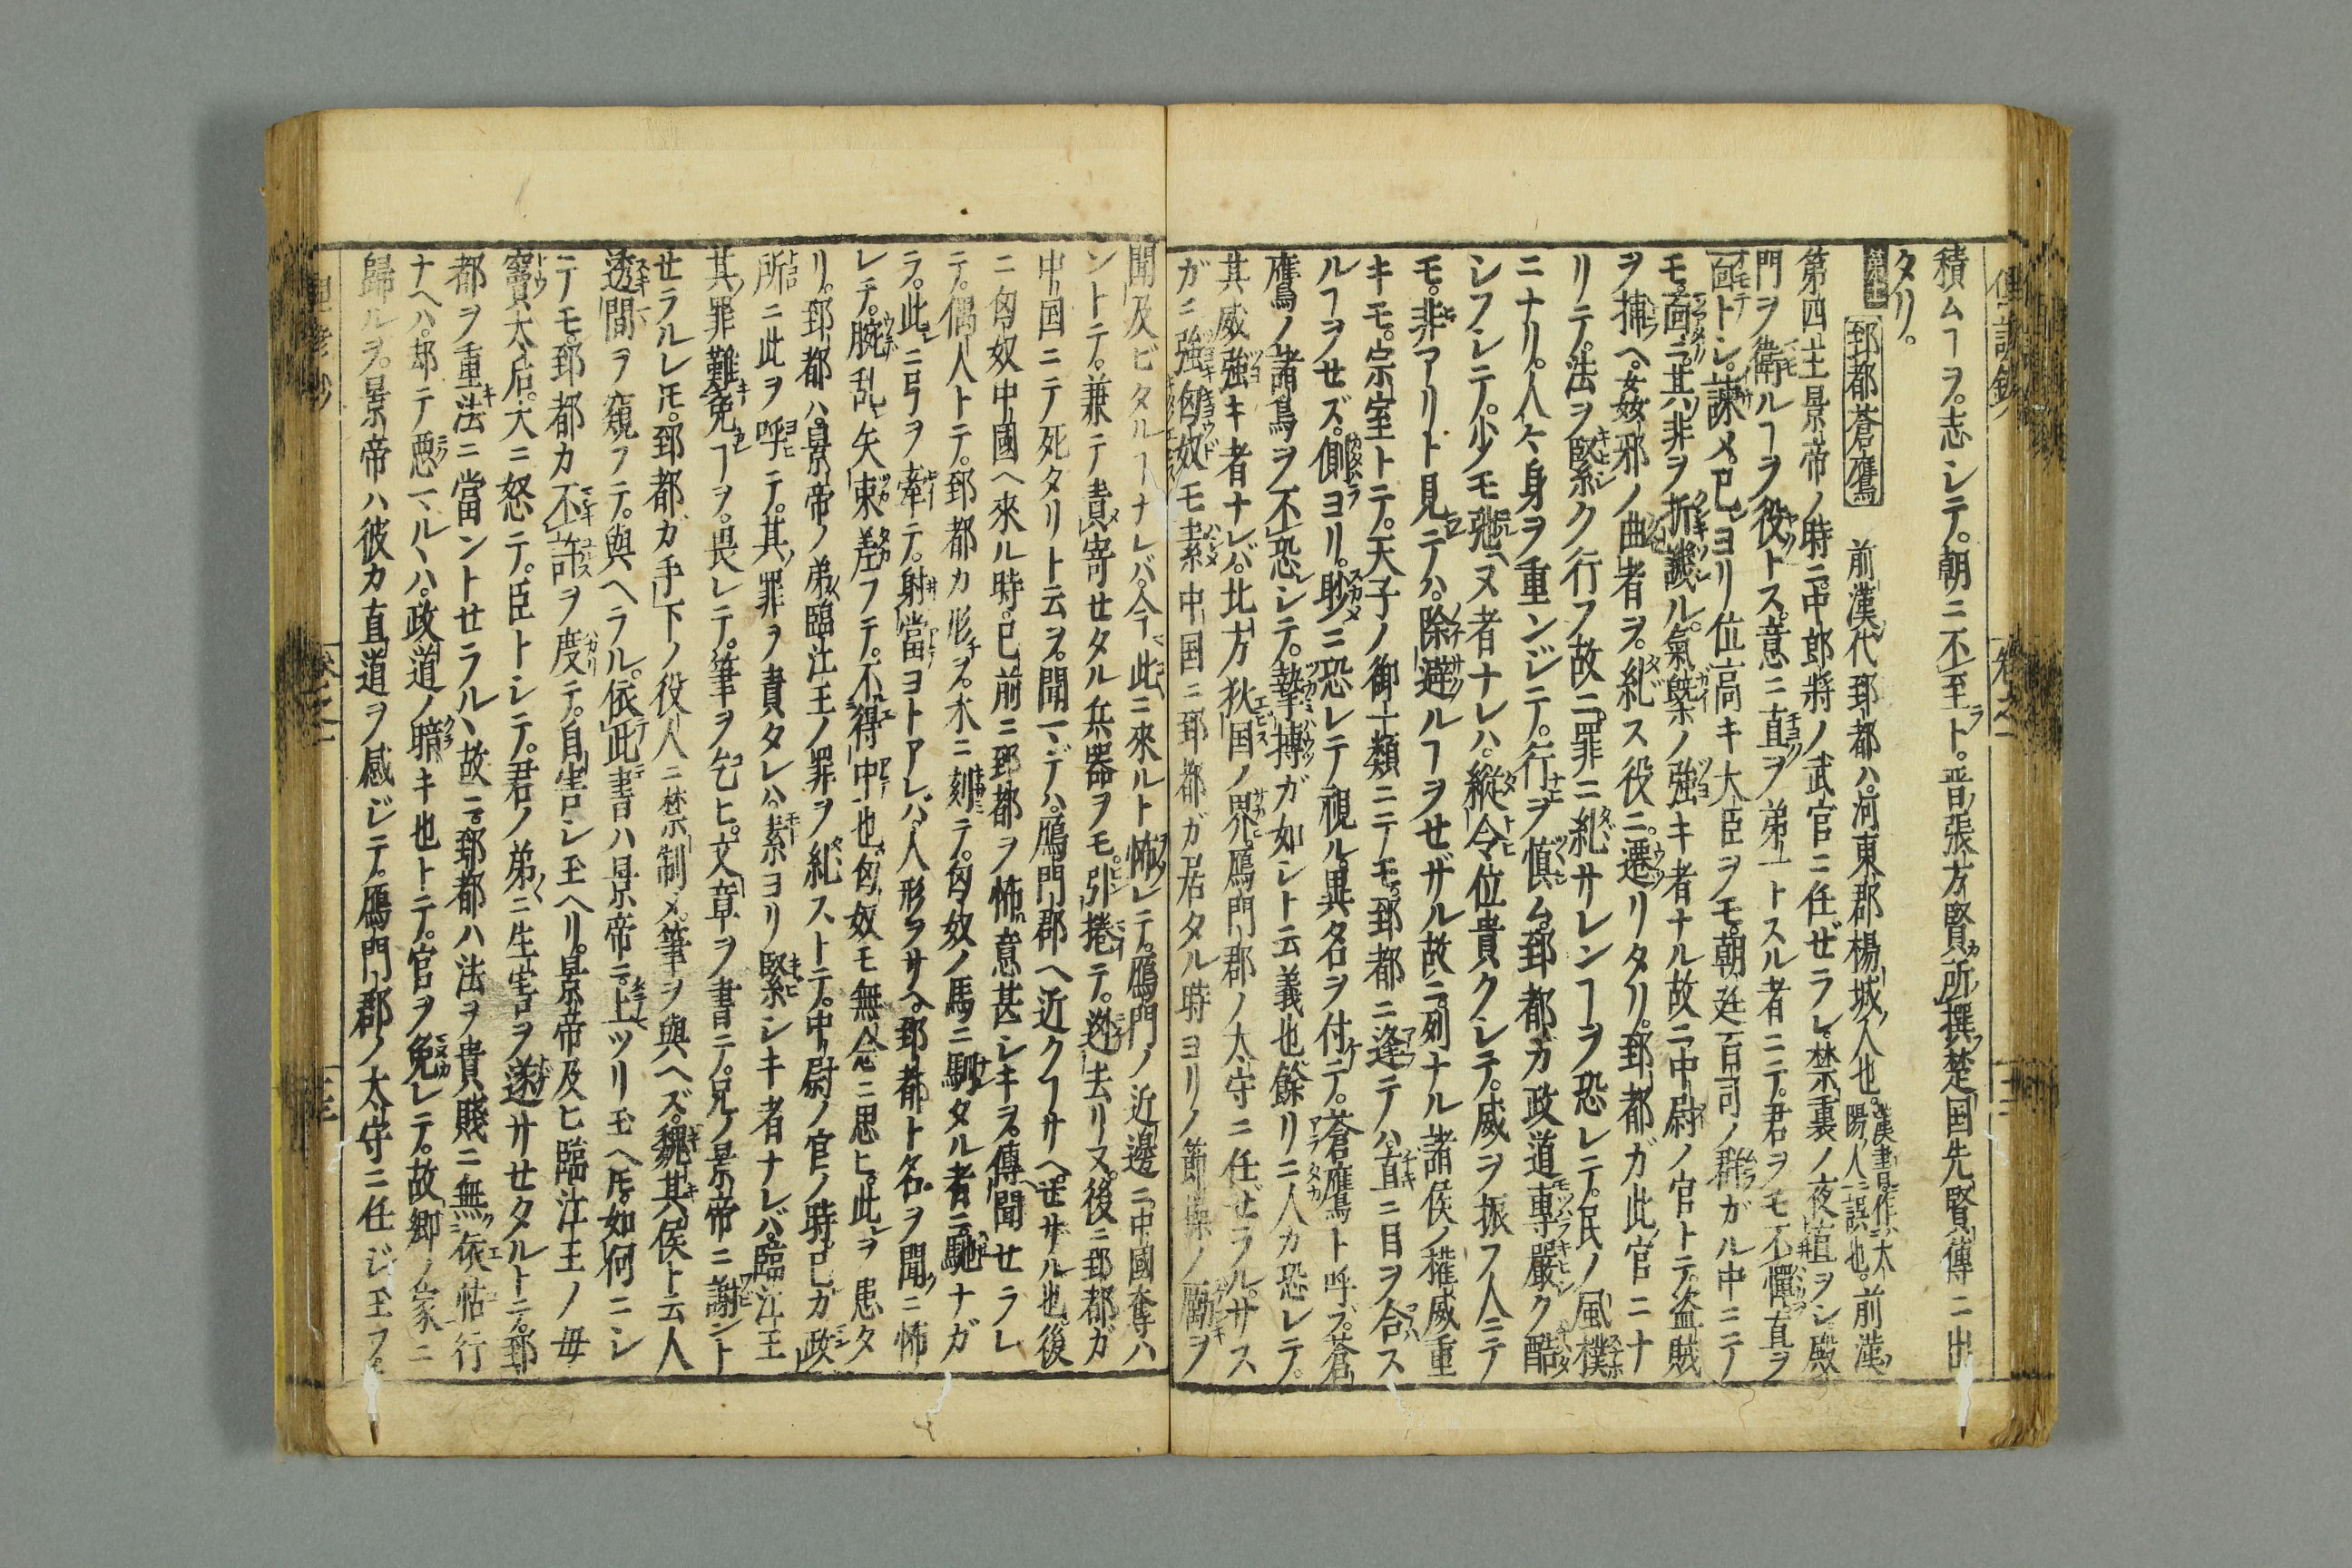 積ムヿヲ。志シテ。朝ニ不至ト。晋ノ張方賢カ所撰楚国先賢傳ニ出
タリ。
郅都蒼鷹 前漢ノ代郅都ハ。河東郡楊城ノ人也。漢書ニ作大陽ノ人ニ誤也。前漢ノ
第四主景帝ノ時ニ。中郎將ノ武官ニ任ゼラレ。禁裏ノ夜直ヲシ殿
門ヲ衛ルヿヲ役トス。意ニ直ヲ第一トスル者ニテ。君ヲモ不憚直ヲ
面トシ。諫メ。已ヨリ位高キ大臣ヲモ。朝廷百司ノ群ガル中ニテ
モ。面ニ。其非ヲ折譏ル。氣槩ノ強キ者ナル故ニ。中尉ノ官トテ。盗賊
ヲ捕ヘ。姦邪ノ曲者ヲ。糺ス役ニ。遷リタリ。郅都ガ此官ニナ
リテ。法ヲ緊ク行フ故ニ。罪ニ糺サレンヿヲ恐レテ。民ノ風樸
ニナリ。人々身ヲ重ンジテ。行ヲ慎ム。郅都カ政道專嚴ク酷
シフシテ。少モ弛ヘヌ者ナレハ。縦令位貴クシテ。威ヲ振フ人ニテ
モ。非アリト見テハ。除避ルヿヲセザル故ニ。列ナル諸侯ノ權威重
キモ。宗室トテ。天子ノ御一類ニテモ。郅都ニ逢テハ。直ニ目ヲ合ス
ルヿヲセズ。側ヨリ。眇ニ恐レテ視ル。異名ヲ付テ。蒼鷹ト呼フ。蒼
鷹ノ諸鳥ヲ不恐シテ。摯搏ガ如シト云義也。餘リニ人カ恐レテ。
其威強キ者ナレバ。北方狄国ノ界。鴈門郡ノ大守ニ任ゼラル。サス
ガニ強匈奴モ素中国ニ郅都ガ居タル時ヨリノ節操ノ勵ヲ
聞及ビタルヿナレバ。今此ニ來ルト怖レテ。鴈門ノ近邊ニ。中國奪ハ
ントテ。兼テ責寄セタル兵器ヲモ。引捲テ。逃去リヌ。後ニ郅都ガ
中国ニテ死タリト云ヲ。聞マデハ。鴈門郡ヘ近クヿサヘ。セサル也。後
ニ匈奴中國ヘ來ル時。已前ニ郅都ヲ怖意甚シキヲ。傳聞セラレ
テ。偶人トテ。郅都カ形ヲ。木ニ刻テ。匈奴ノ馬ヲニ馴タル者ニ馳ナガ
ラ。此ニ弓ヲ牽テ。射當ヨトアレバ。人形ヲサヘ。郅都ト名ヲ聞ニ怖
レテ。腕乱矢束差フテ。不得中也。匈奴モ無念ニ思ヒ。此ヲ患タ
リ。郅都ハ。景帝ノ弟臨江王ノ罪ヲ糺ストテ。中尉ノ官ノ時。已カ政
所ニ此ヲ呼テ。其罪ヲ責タレハ。素ヨリ緊シキ者ナレバ。臨江王
其罪難免ヿヲ。畏レテ。筆ヲ乞ヒ。文章ヲ書テ。兄ノ景帝ニ謝ント
セラルレ𪜈。郅都ガ手下ノ役人ニ禁制メ。筆ヲ與ヘズ。魏其侯ト云人
透間ヲ窺フテ。與ヘラル。依此書ハ景帝ニ。上ツリ玉ヘ𪜈。如何ニシ
テモ。郅都カ不許ヲ度テ。自害シ玉ヘリ。景帝及ヒ臨江王ノ母
竇太后。大ニ怒テ。臣トシテ。君ノ弟ニ生害ヲ遂サセタルトテ。郅
都ヲ重法ニ當ントセラル、故ニ。郅都ハ法ヲ貴賤ニ無依怙行
ナヘハ。却テ惡マル、ハ。政道ノ暗キ也トテ。官ヲ免レテ。故郷ノ家ニ
歸ルヲ。景帝ハ彼カ直道ヲ感ジテ。鴈門郡ノ太守ニ任ジ玉フ